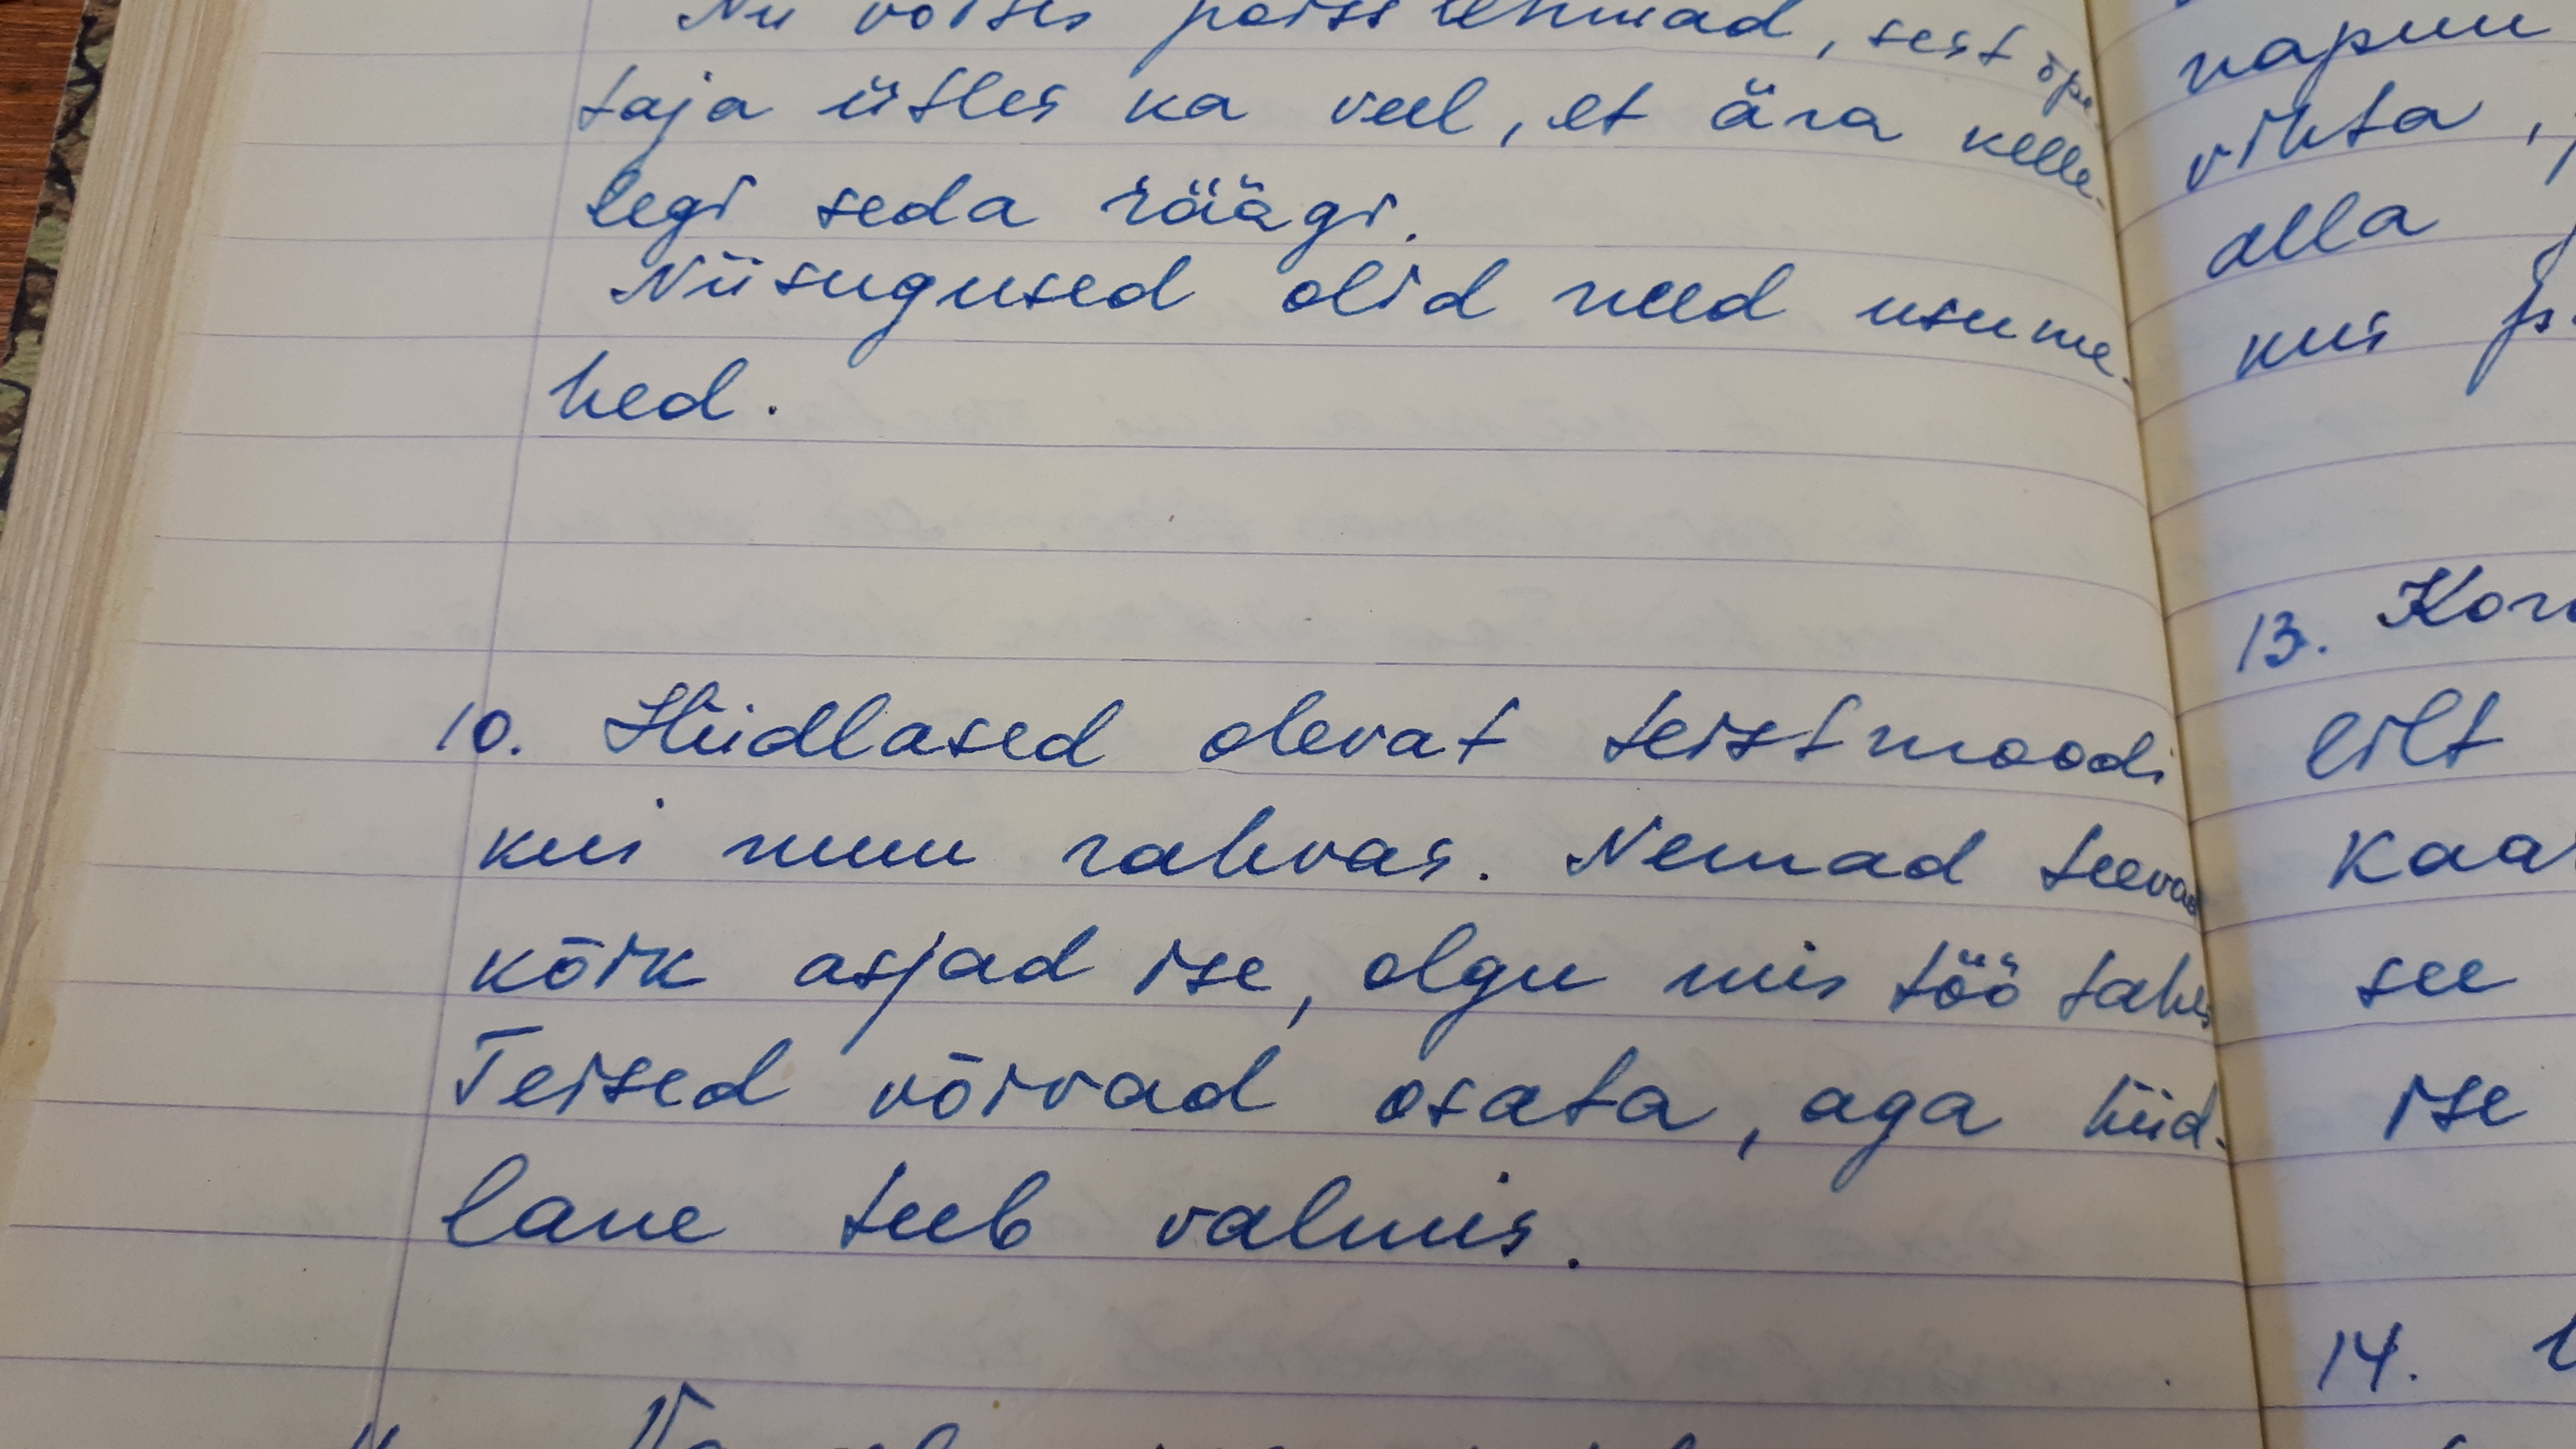 poiss lehmad, sest õpe-
taja ütles ka veel, et ära kelle-
legi seda räägi.
Niisugused olid need usume-
hed.
10. Hiidlased olevat teistmoodi
kui muu rahvas. Nemad teevad
kõik asjad ise, olgu mis töö tahes
Teised võivad osata, aga hiid-
lane teeb valmis.
vihta,
alla
kus
13.
see
ise
14.